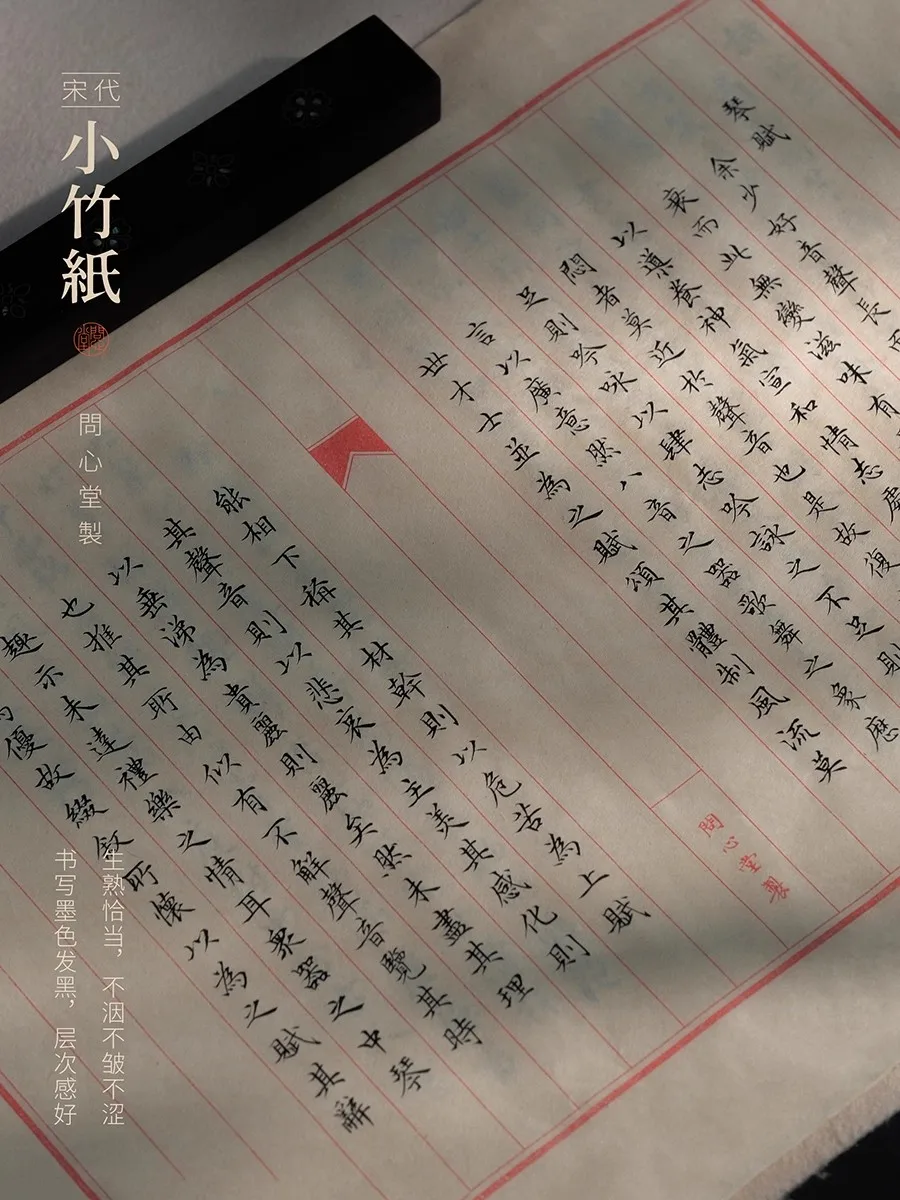 宋代
小竹紙
問心堂
問心堂製
生熟恰当，不洇不皱不涩
书写墨色发黑，层次感好
琴賦
余少好音聲長而
衰而此無變滋味有
以導養神氣宣和情志處
悶者莫近於聲音也是故復
足則吟咏以肆志吟詠之不足則
言以廣意然八音之器歌舞之象歷
世才士並為之賦頌其體制風流莫
問心堂製
能相下稱其材幹則以危苦為上賦
其聲音則以悲哀為主美其感化則
以垂涕為貴麗則麗矣然未盡其理
也推其所由似有不解聲音覽其時
趣示未達禮樂之情耳衆器之中琴
優故綴叙所懷以為之賦其辭